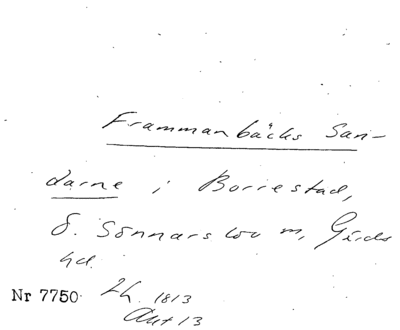 Frammanbäcks San-
darne i Borrestad,
Ö. Sönnarslöv m, Gärds
hd.
Nr 7750 Lh. 1813
Akt 13